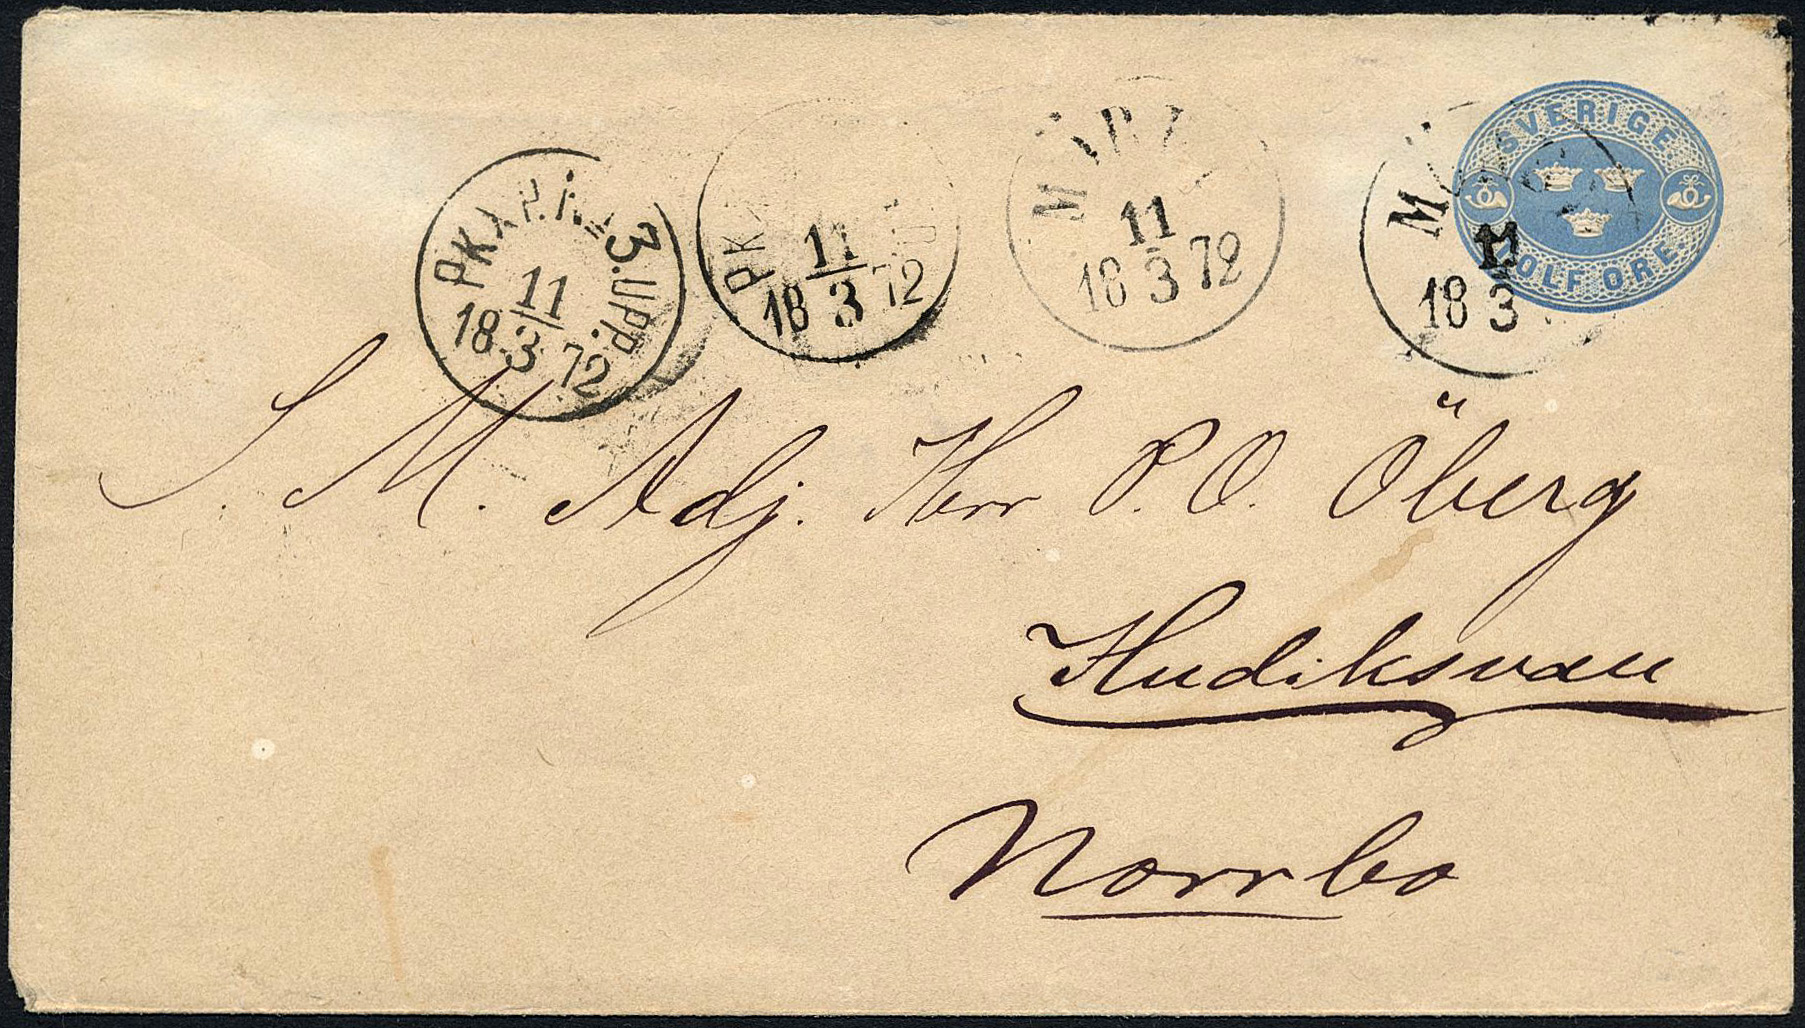 PKXP. Nr 3. UPP.
11
18 3 72
PK
11
18 3 72
11
18 3 72
11
18 3
SVERIGE
TOLF ÖRE
S. M. Adj. Herr P. O. Öberg
Hudiksvall
Norrbo